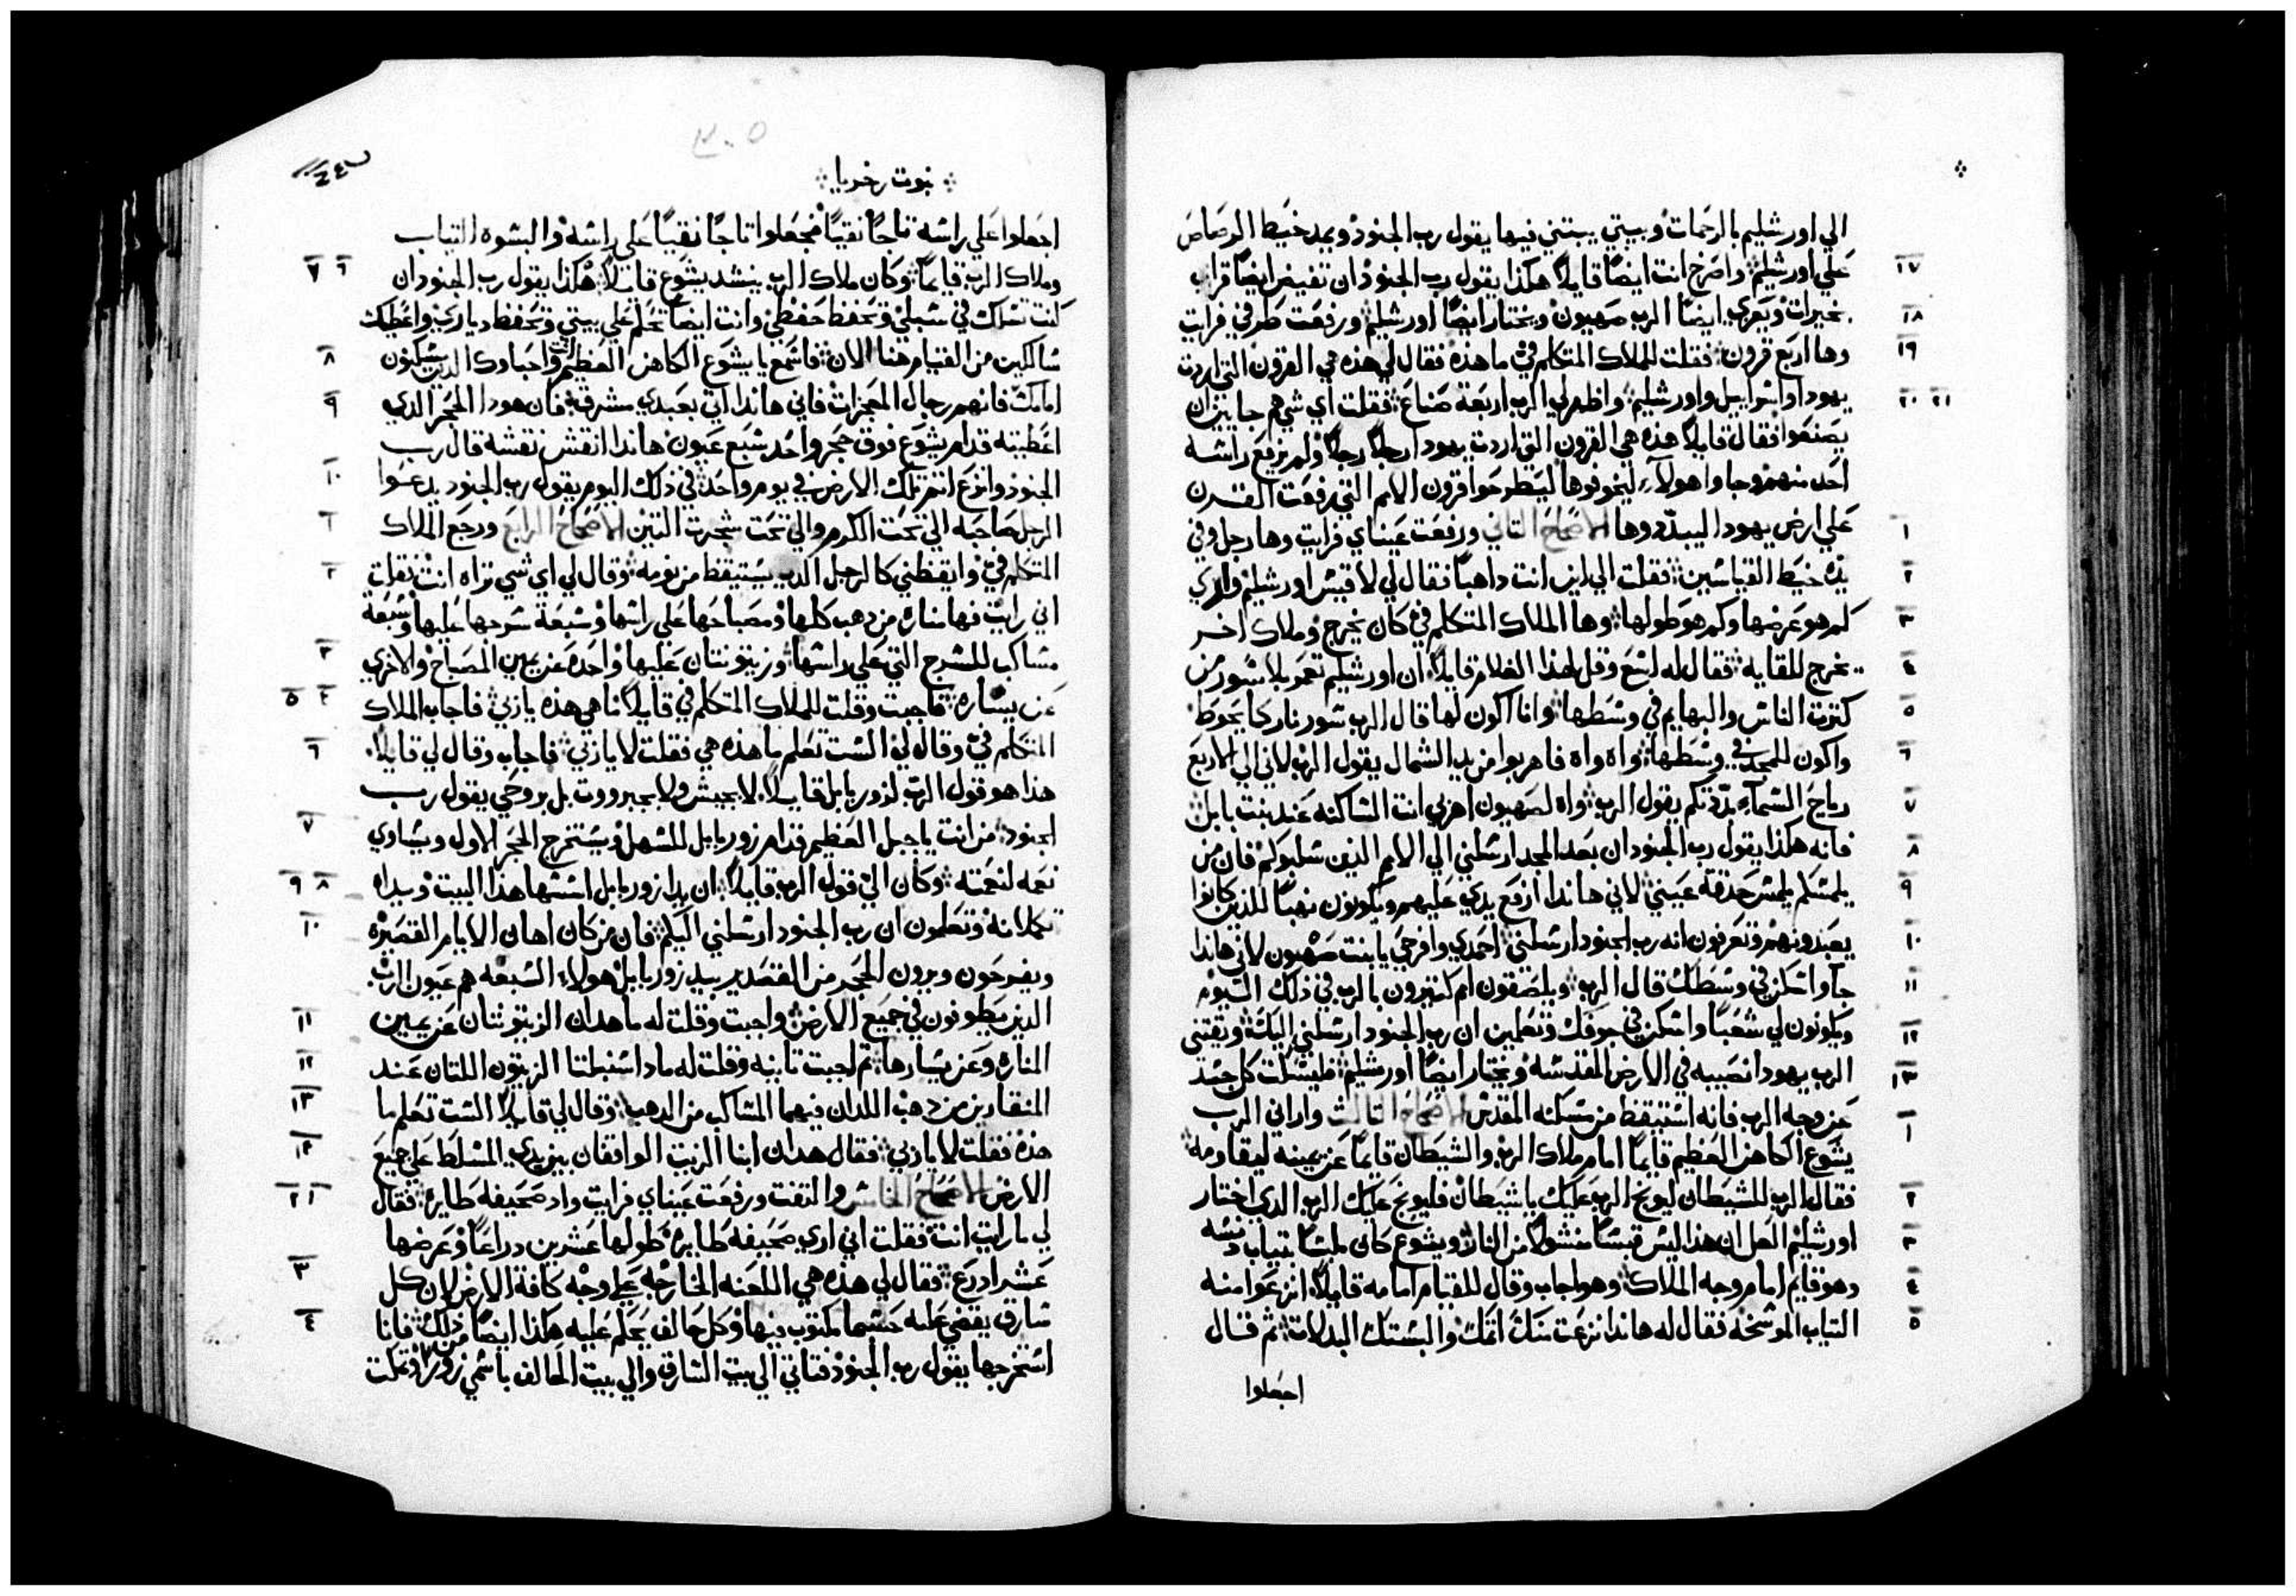 الي اورشليم بالرحمات وبيتي يبتني فيها يقول رب الجنود ويمد خيط الرصاص
١٧ علي اورشليم واصرخ انت ايضًا قايلاً هكذا يقول رب الجنود ان تفيض ايضًا قراي
١٨ بخيرات ويعزي ايضًا الرب صهيون ويختار ايضًا اورشليم ورفعت طرفي فرايت
١٩ وها اربع قرون فقلت للملاك المتكلم فيّ ما هذه فقال لي هذه هي القرون التي اردت
٢٠ ٢١ يهودا واسراييل واورشليم واظهر لي الرب اربعة صناع فقلت اي شي هم جايين ان
يصنعوا فقال قايلاً هذه هي القرون التي اردت يهودا رجلاً رجلاً ولم يرفع راسه
احد منهم وجاوا هولاء ليخوفوها ليطرحوا قرون الامم التي رفعت القرن
١ علي ارض يهودا ليبددوها الاصحاح الثاني ورفعت عيناي فرايت وها رجل وفي
٢ يده خيط القياسين فقلت الي اين انت داهبًا فقال لي لاقيس اورشليم واري
٣ كم هو عرضها وكم هو طولها وها الملاك المتكلم فيّ كان يخرج وملاك اخر
٤ يخرج للقايه فقال له اسع وقل لهذا الغلام قايلاً ان اورشليم تعمر بلا سور من
٥ كثرة الناس والبهايم في وسطها وانا اكون لها قال الرب سور نار كما يحوط
٦ واكون للمجد في وسطها واه واه فاهربوا من بلد الشمال يقول الرب لاني الي الاربع
٧ رياح السماء بدّدتكم يقول الرب واه لصهيون اهربي انت الساكنه عند بنت بابل
٨ فانه هكذا يقول رب الجنود ان بعد المجد ارسلني الي الامم الذين سلبوكم فان من
٩ يلمسكم يلمس حدقة عيني لاني هاندا ارفع يدي عليهم ويكونون نهبًا للذين كانوا
١٠ يعبدونهم وتعرفون انه رب الجنود ارسلني احمدي وافرحي يا بنت صهيون لاني هاندا
١١ جا واسكن في وسطك قال الرب ويلصقون امم كثيرون بالرب في ذلك اليوم
١٢ ويكونون لي شعبًا واسكن في جوفك وتعلمين ان رب الجنود ارسلني اليك ويقتني
١٣ الرب يهودا نصيبه في الارض المقدسه ويختار ايضًا اورشليم فليسكت كل جسد
١ عن وجه الرب فانه استيقظ من مسكنه المقدس الاصحاح الثالث واراني الرب
يشوع الكاهن العظيم قايمًا امام ملاك الرب والشيطان قايمًا عن يمينه ليقاومه
٢ فقال الرب للشيطان ليوبخ الرب عليك يا شيطان فليوبخ عليك الرب الدي اختار
٣ اورشليم العل ان هذا ليس قبسًا منشولاً من النار ويشوع كان لابسًا تياب دنسه
٤ وهو قايم امام وجه الملاك وهو اجاب وقال للقيام امامه قايلاً انزعوا منه
٥ التياب الموسخه فقال له هاندا نزعت منك اثمك والبستك البدلات ثم قال
اجعلوا
٢٠٥
نبوت زخريا
اجعلوا علي راسه تاجًا نقيًا فجعلوا تاجًا نقيًا علي راسه والبسوه التياب
٦ ٧ وملاك الرب قايمًا وكان ملاك الرب ينشد يشوع قايلاً هكذا يقول رب الجنود ان
كنت تسلك في سبلي وتحفظ حفظي وانت ايضًا تحكم علي بيتي وتحفظ دياري واعطيك
٨ سالكين من القيام هنا الان فاسمع يا يشوع الكاهن العظيم انت واحباوك الذين يسكنون
٩ امامك فانهم رجال المعجزات فاني هاندا اتي بعبدي مشرق فان هودا الحجر الدي
اعطيته قدام يشوع فوق حجر واحد سبع عيون هاندا انقش نقشه قال رب
١٠ الجنود وانزع اثم تلك الارض في يوم واحد في ذلك اليوم يقول رب الجنود يدعوا
١ الرجل صاحبه الي تحت الكرم والي تحت شجرت التين الاصحاح الرابع ورجع الملاك
٢ المتكلم فيّ وايقظني كالرجل الدي يستيقظ من نومه وقال لي اي شي تراه انت فقلت
اني رايت فها مناره من دهب كلها ومصباحها علي راسها وسبعة سرجها عليها وسبعة
٣ مساكب للسرج التي علي راسها وزيتونتان عليها واحده عن يمين المصباح والاخري
٤ ٥ عن يساره فاجبت وقلت للملاك المتكلم فيّ قايلاً ما هي هذه يا ربي فاجاب الملاك
٦ المتكلم فيّ وقال لي الست تعلم ما هذه هي فقلت لا يا ربي فاجاب وقال لي قايلاً
هذا هو قول الرب لزوربابل قايلاً لا بجيش ولا بجبرووت بل بروحي يقول رب
٧ الجنود من انت يا جبل العظيم قدام زوربابل للسهل ويستخرج الحجر الاول ويساوي
٨ ٩ نعمه لنعمته وكان اليّ قول الرب قايلاً ان يدا زوربابل اسسها هذا البيت ويداه
١٠ تكملانه وتعلمون ان رب الجنود ارسلني اليكم فان من كان اهان الايام القصيره
ويفرحون ويرون الحجر من القصدير بيد زوربابل هولاء السبعه هم عيون الرب
١١ الدين يطوفون في جميع الارض واجبت وقلت له ما هدان الزيتونتان عن يمين
١٢ المناره وعن يسارها ثم اجبت تانيه وقلت له مادا سنبلتا الزيتون اللتان عند
١٣ المنقارين من دهب اللدان فيهما المساكب من الدهب وقال لي قايلاً الست تعلم ما
١٤ هذه فقلت لا يا ربي فقال هدان ابنا الزيت الواقفان بين يدي المسلط علي جميع
١ ٢ الارض الاصحاح الخامس والتفت ورفعت عيناي فرايت واد صحيفه طايره فقال
لي ما رايت انت فقلت اني اري صحيفه طايره طولها عشرين دراعًا وعرضها
٣ عشر ادرع فقال لي هذه هي اللعنه الخارجه علي وجه كافة الارض لان كل
٤ سارق يقضي عليه حسبما مكتوب فيها وكل حالف يحكم عليه هكذا ايضًا من ذلك فانا
استخرجها يقول رب الجنود فتاتي الي بيت السارق والي بيت الحالف باسمي زورًا وتمكت